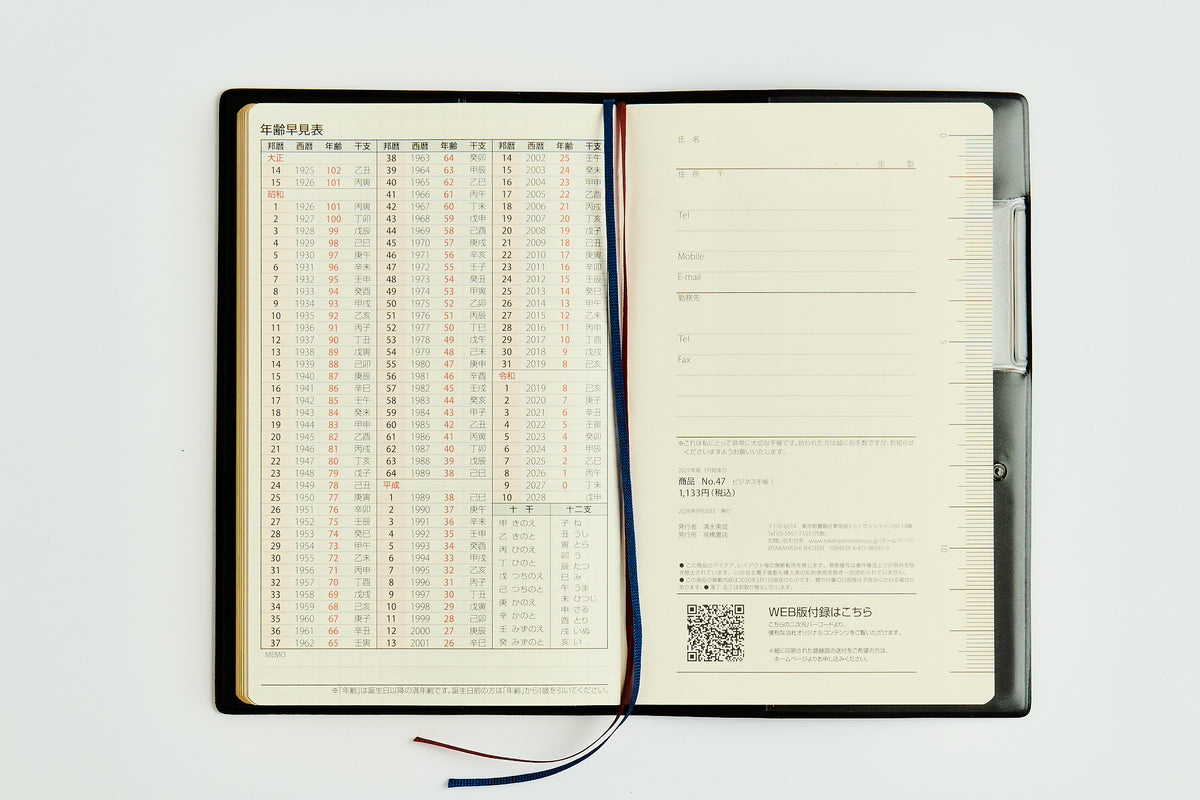 年齢早見表
邦暦 西暦 年齢 干支
大正
14 1925 102 乙丑
15 1926 101 丙寅
昭和
1 1926 101 丙寅
2 1927 100 丁卯
3 1928 99 戊辰
4 1929 98 己巳
5 1930 97 庚午
6 1931 96 辛未
7 1932 95 壬申
8 1933 94 癸酉
9 1934 93 甲戌
10 1935 92 乙亥
11 1936 91 丙子
12 1937 90 丁丑
13 1938 89 戊寅
14 1939 88 己卯
15 1940 87 庚辰
16 1941 86 辛巳
17 1942 85 壬午
18 1943 84 癸未
19 1944 83 甲申
20 1945 82 乙酉
21 1946 81 丙戌
22 1947 80 丁亥
23 1948 79 戊子
24 1949 78 己丑
25 1950 77 庚寅
26 1951 76 辛卯
27 1952 75 壬辰
28 1953 74 癸巳
29 1954 73 甲午
30 1955 72 乙未
31 1956 71 丙申
32 1957 70 丁酉
33 1958 69 戊戌
34 1959 68 己亥
35 1960 67 庚子
36 1961 66 辛丑
37 1962 65 壬寅
邦暦 西暦 年齢 干支
38 1963 64 癸卯
39 1964 63 甲辰
40 1965 62 乙巳
41 1966 61 丙午
42 1967 60 丁未
43 1968 59 戊申
44 1969 58 己酉
45 1970 57 庚戌
46 1971 56 辛亥
47 1972 55 壬子
48 1973 54 癸丑
49 1974 53 甲寅
50 1975 52 乙卯
51 1976 51 丙辰
52 1977 50 丁巳
53 1978 49 戊午
54 1979 48 己未
55 1980 47 庚申
56 1981 46 辛酉
57 1982 45 壬戌
58 1983 44 癸亥
59 1984 43 甲子
60 1985 42 乙丑
61 1986 41 丙寅
62 1987 40 丁卯
63 1988 39 戊辰
64 1989 38 己巳
平成
1 1989 38 己巳
2 1990 37 庚午
3 1991 36 辛未
4 1992 35 壬申
5 1993 34 癸酉
6 1994 33 甲戌
7 1995 32 乙亥
8 1996 31 丙子
9 1997 30 丁丑
10 1998 29 戊寅
11 1999 28 己卯
12 2000 27 庚辰
13 2001 26 辛巳
邦暦 西暦 年齢 干支
14 2002 25 壬午
15 2003 24 癸未
16 2004 23 甲申
17 2005 22 乙酉
18 2006 21 丙戌
19 2007 20 丁亥
20 2008 19 戊子
21 2009 18 己丑
22 2010 17 庚寅
23 2011 16 辛卯
24 2012 15 壬辰
25 2013 14 癸巳
26 2014 13 甲午
27 2015 12 乙未
28 2016 11 丙申
29 2017 10 丁酉
30 2018 9 戊戌
31 2019 8 己亥
令和
1 2019 8 己亥
2 2020 7 庚子
3 2021 6 辛丑
4 2022 5 壬寅
5 2023 4 癸卯
6 2024 3 甲辰
7 2025 2 乙巳
8 2026 1 丙午
9 2027 0 丁未
10 2028 戊申
十 干 十二支
甲 きのえ
乙 きのと
丙 ひのえ
丁 ひのと
戊 つちのえ
己 つちのと
庚 かのえ
辛 かのと
壬 みずのえ
癸 みずのと
子 ね
丑 うし
寅 とら
卯 う
辰 たつ
巳 み
午 うま
未 ひつじ
申 さる
酉 とり
戌 いぬ
亥 い
MEMO
※「年齢」は誕生日以降の満年齢です。誕生日前の方は「年齢」から1歳を引いてください。
氏 名
・ ・ 生 型
住 所 〒
Tel
Mobile
E-mail
勤務先
Tel
Fax
※これは私にとって非常に大切な手帳です。拾われた方は誠にお手数ですが、お知らせ
くださいますようお願いいたします。
2027年版 1月始まり
商品 No.47 ビジネス手帳 1
1,133円(税込)
2026年9月20日 発行
発行者 清水美成
発行所 高橋書店
〒170-6014 東京都豊島区東池袋3-1-1 サンシャイン60 14階
Tel 03-5957-7103(代表)
お問い合わせ先 www.takahashishoten.co.jp(ホームページ)
©TAKAHASHI SHOTEN ISBN978-4-471-86047-9
● この商品のアイデア、レイアウト等の無断転用を禁じます。無断複写は著作権法上での例外を除
き禁止されています。いかなる電子複製も購入者の私的使用を除き一切認められていません。
● この商品の掲載内容は2026年2月1日現在のものです。暦や行事の日程等は予告なくかわる場合が
あります。● 落丁・乱丁はお取り替えいたします。
WEB版付録はこちら
こちらの二次元バーコードより、
便利な当社オリジナルコンテンツをご覧いただけます。
※紙に印刷された路線図の送付をご希望の方は、
ホームページよりお申し込みください。
0
5
10